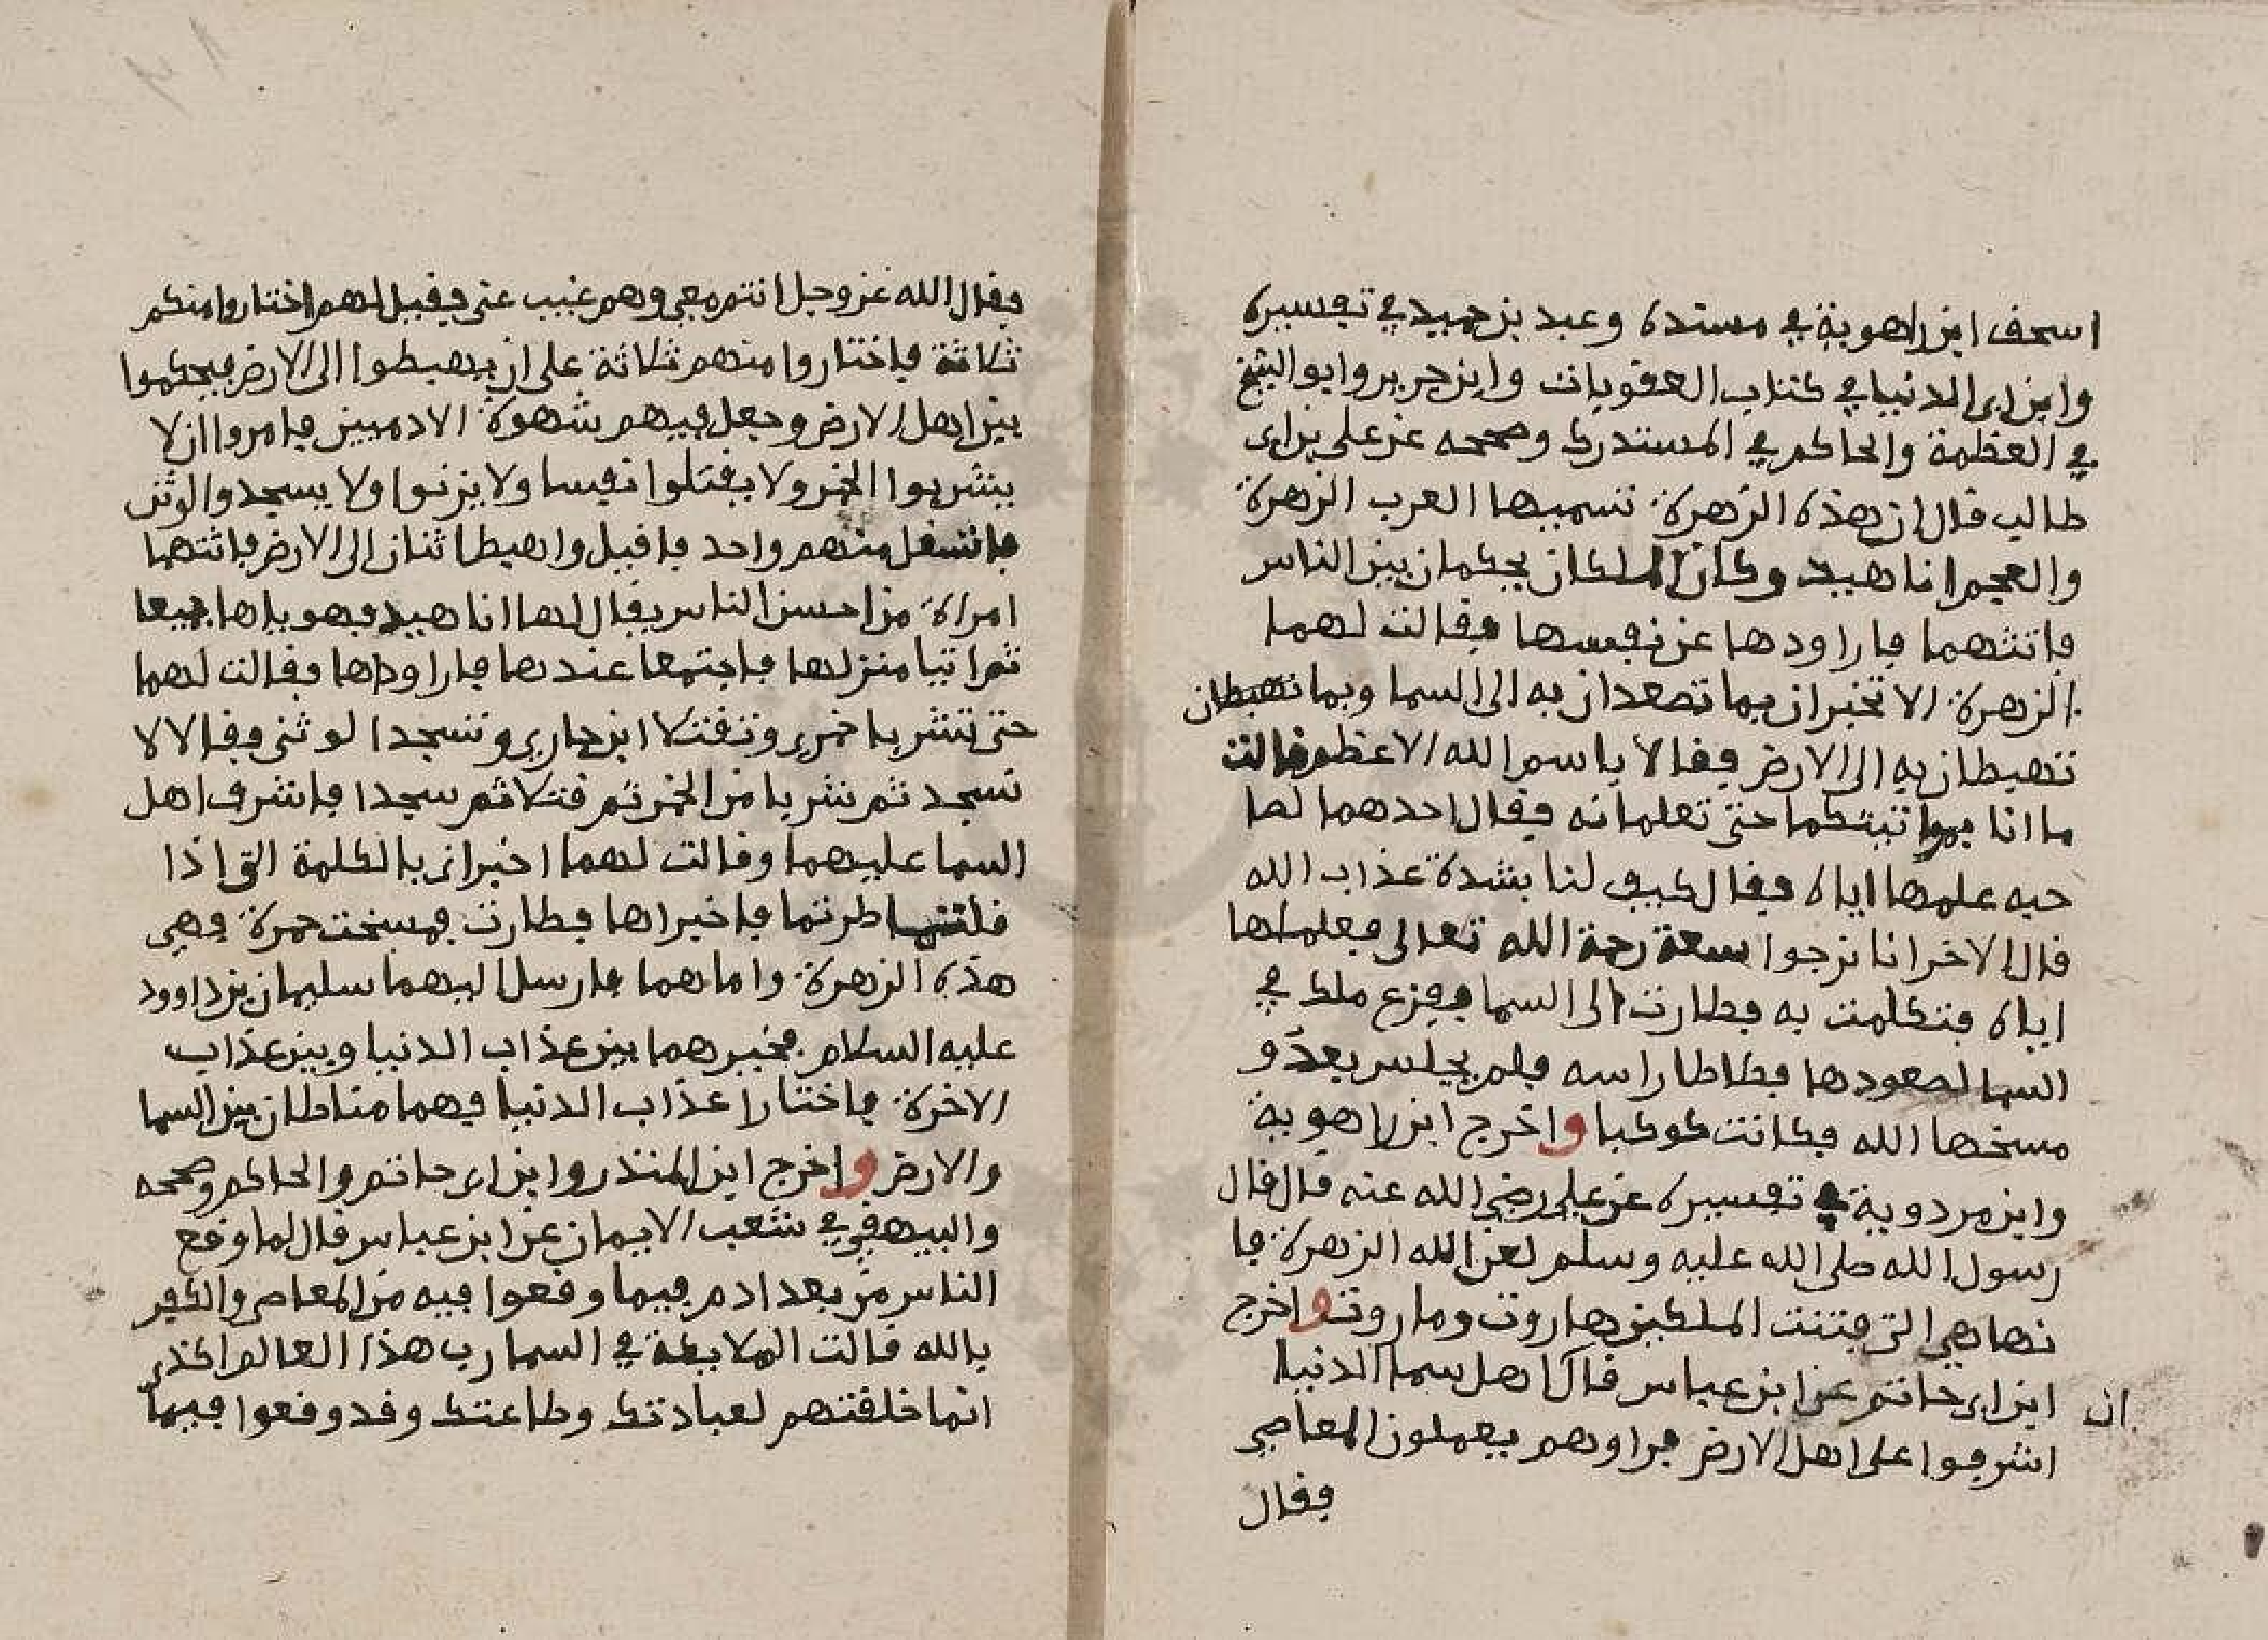 اسحق ابن راهوية في مسنده وعبد بن حميد في تفسيره
وابن ابى الدنيا في كتاب العقوبات وابن جرير وابو الشيخ
في العظمة والحاكم في المستدرك وصححه عن على بن ابى
طالب قال ان هذه الزهرة تسميها العرب الزهرة
والعجم اناهيد وكان الملكان يحكمان بين الناس
فاتتهما فاراودها عن نفسها فقالت لهما
الزهرة الا تخبران بما تصعدان به الى السما وبما تهبطان
تهبطان به الى الارض فقالا باسم الله الاعظم فقالت
ما انا بمواتيتكما حتى تعلمانه فقال احدهما لصا
حبه علمها اياه فقال كيف لنا بشدة عذاب الله
قال الاخر انا نرجوا سعة رحمة الله تعالى فعلماها
اياه فتكلمت به فطارت الى السما ففزع ملك في
السما لصعودها فطاطا راسه فلم يجلس بعد و
مسخها الله فكانت كوكبا واخرج ابن راهوية
وابن مردوية في تفسيره عن على رضي الله عنه قال قال
رسول الله صلى الله عليه وسلم لعن الله الزهرة فا
نها هي التى فتنت الملكين هاروت وماروت واخرج
ابن ابى حاتم عن ابن عباس قال اهل سما الدنيا
ان
اشرفوا على اهل الارض فراوهم يعملون المعاصي
فقال
فقال الله عز وجل انتم معي وهم غيب عنى فقيل لهم اختاروا منكم
ثلاثة فاختاروا منهم ثلاثة على ان يهبطوا الى الارض فيحكموا
بين اهل الارض وجعل فيهم شهوة الادميين فامروا ان لا
يشربوا الخمر ولا يقتلوا نفسا ولا يزنوا ولا يسجدوا لوثن
فاستقل منهم واحد فاقيل واهبط اثنان الى الارض فاتتهما
امراة من احسن الناس يقال لها اناهيد فهوياها جميعا
ثم اتيا منزلها فاجتمعا عندها فاراوداها فقالت لهما
حتى تشربا خمرى وتقتلا ابن جارى وتسجدا لوثنى فقالا لا
نسجد ثم شربا من الخمر ثم قتلا ثم سجدا فاشرف اهل
السما عليهما وقالت لهما اخبرانى بالكلمة التى اذا
قلتماها طرتما فاخبراها فطارت فمسخت جمرة فهي
هذه الزهرة واماهما فارسل اليهما سليمان بن داوود
عليه السلام فخيرهما بين عذاب الدنيا وبين عذاب
الاخرة فاختارا عذاب الدنيا فهما مناطان بين السما
والارض واخرج ابن المنذر وابن ابى حاتم والحاكم وصححه
والبيهقي في شعب الايمان عن ابن عباس قال لما وقع
الناس من بعد ادم فيما وقعوا فيه من المعاصى والكفر
بالله قالت الملايكة في السما رب هذا العالم الذى
انما خلقتهم لعبادتك وطاعتك وقد وقعوا فيما